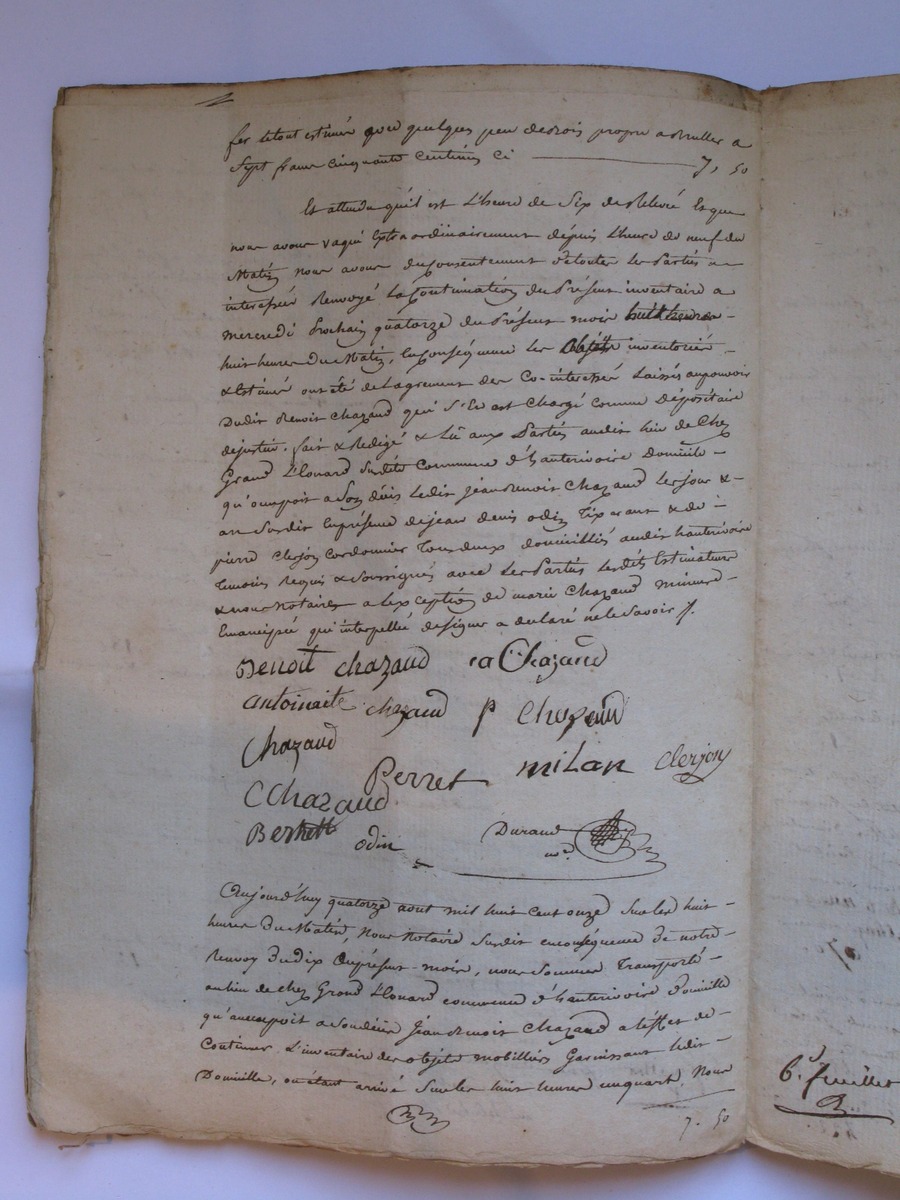 fer le tout estimé avec quelques peu de bois propre a bruller a
Sept francs Cinquante Centimes Ci 7, 50
Et attendu qu'il est L'heure de Six de Relevée Et que
nous avons vaqué Extraordinairement dépuis L'heure de neuf du
Matin nous avons du Consentement de toutes les Parties
interessées Renvoyé La Continuation du Présent inventaire a
mercredi Prochain quatorze du Présent mois huit heures
huit heures Du Matin, En Conséquence les Objets inventoriés
& Estimés ont été de L'agrement des Co-interessés Laissés au pouvoir
Dudit Benoit Chazaud qui S'En est Chargé Comme dépositaire
de justice, fait & Redigé & Lû aux Parties audit lieu de Chez
Grand L'Eonard Susdite Commune d'hauterivoire Domicile
qu'occupoit a Son décès Ledit Jean Benoit Chazaud Les jour &
an Susdit En présence de jean denis odin Tixerant & de
pierre Clerjon Cordonnier Tous deux domiciliés audit hauterivoire
Temoins Requis & Soussignés avec Les Parties Lesdits Estimateurs
& nous Notaires a L'exception de marie Chazaud mineure
Emancipée qui interpellée de signer a declaré ne le Savoir /.
Benoit chazaud ca Chazaud
antoinaite chazaud p Chazaud
Chazaud
Perret milan Clerjon
C Chazaud
Berhett odin Durand
nre.
Aujourd'huy quatorze aout mil huit cent onze Sur les huit
heures Du Matin, Nous Notaire Susdit en conséquence de notre
Renvoy Du dix Du présent mois, nous Sommes Transporté
au lieu de chez Grand L'Eonard commune d'hauterivoire Domicille
qu'occupoit a Son décès Jean Benoit Chazaud a l'effet de
Continuer L'inventaire des objets mobilliers Garnissant Ledit
Domicille, ou étant arrivé Sur les huit heures un quart, Nous
7. 50
6e. feuillet